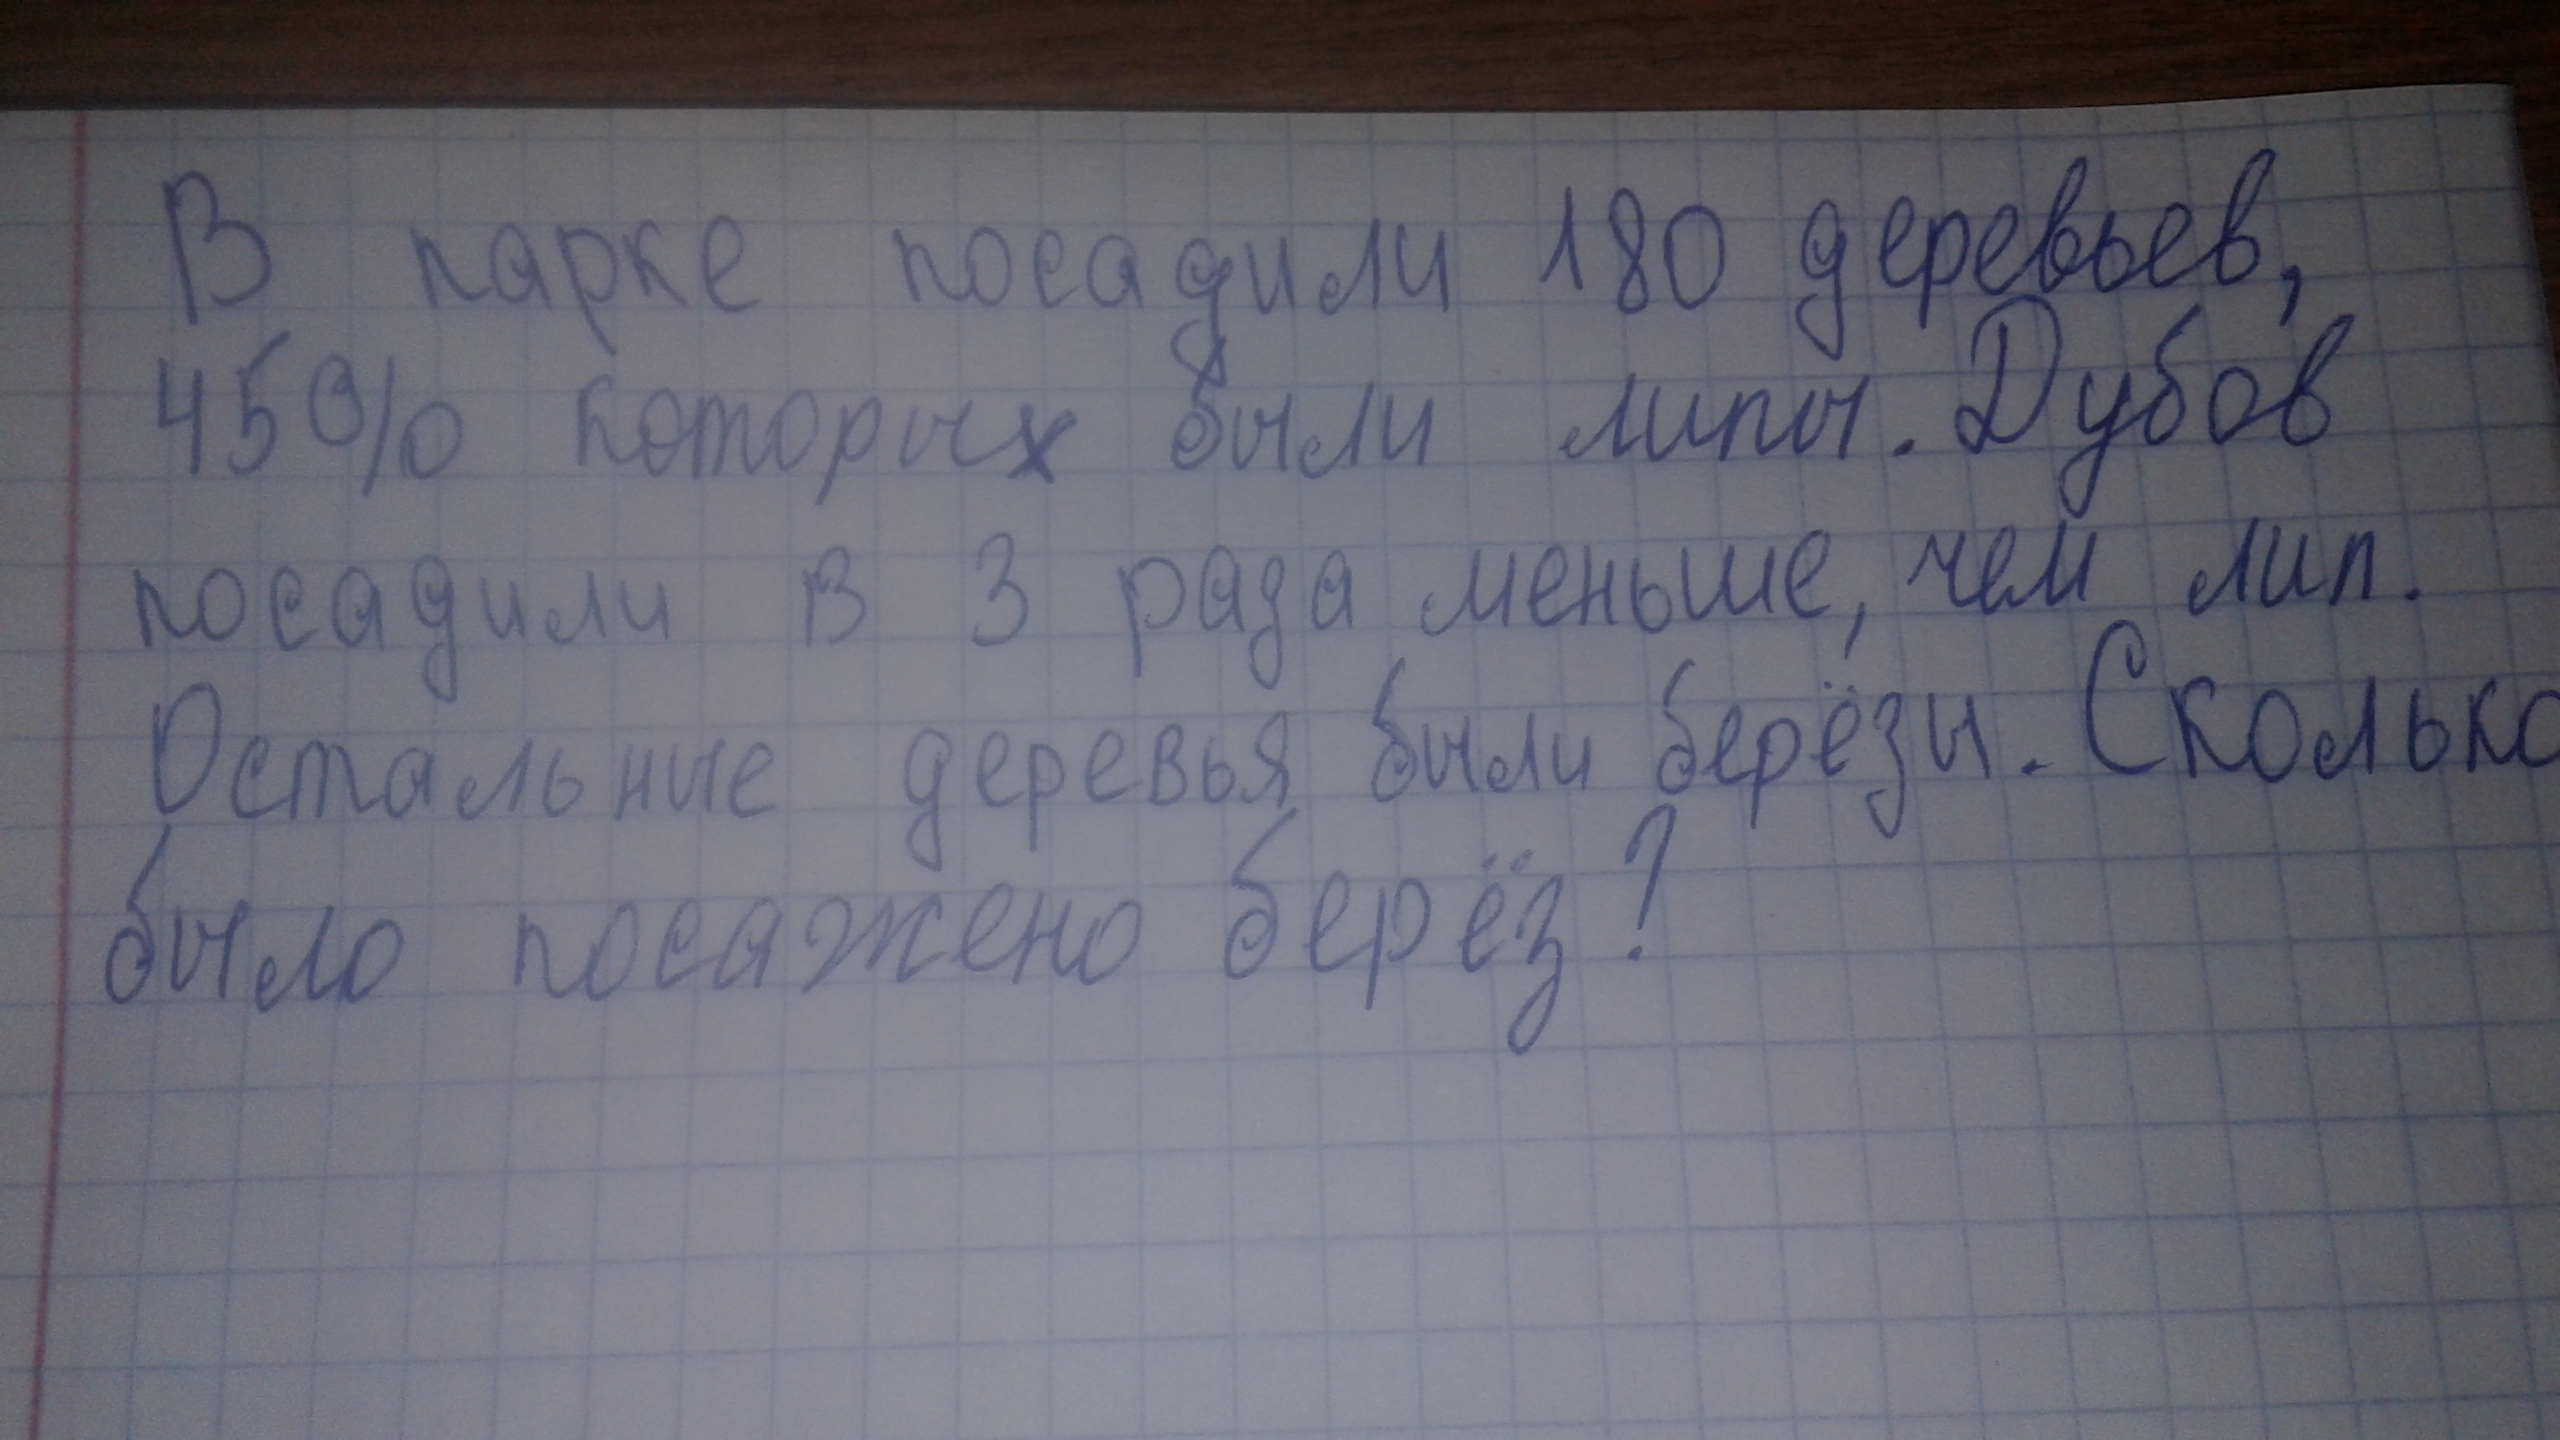 В парке посадили 180 деревьев,
45% которых были липы. Дубов
посадили в 3 раза меньше, чем лип.
Остальные деревья были берёзы. Сколько
было посажено берёз?